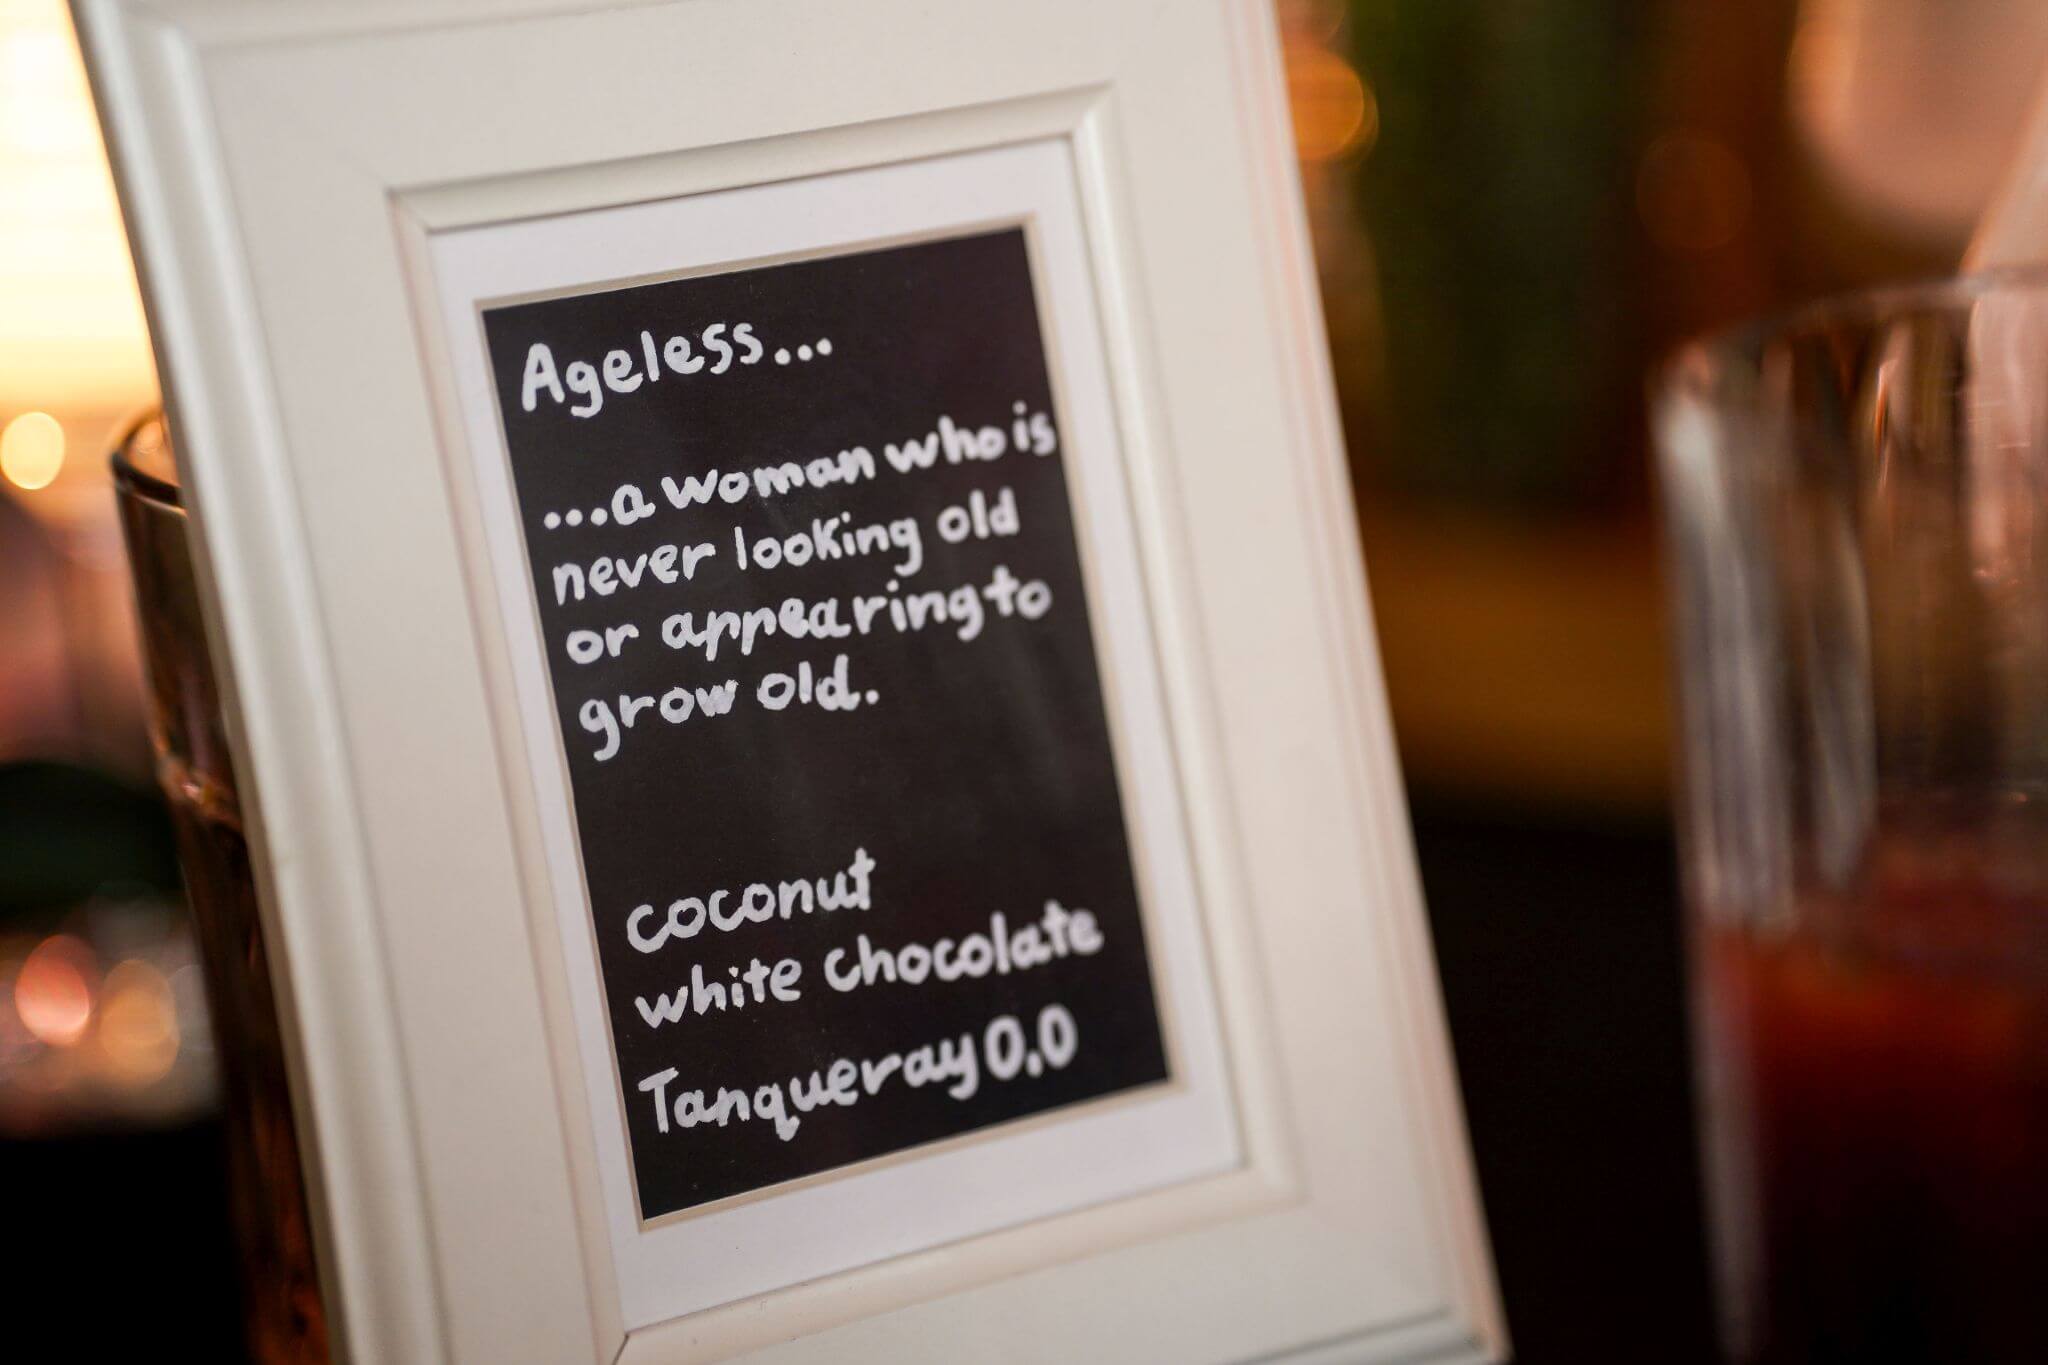 Ageless...
...a woman who is
never looking old
or appearing to
grow old.
coconut
white chocolate
Tanqueray 0.0